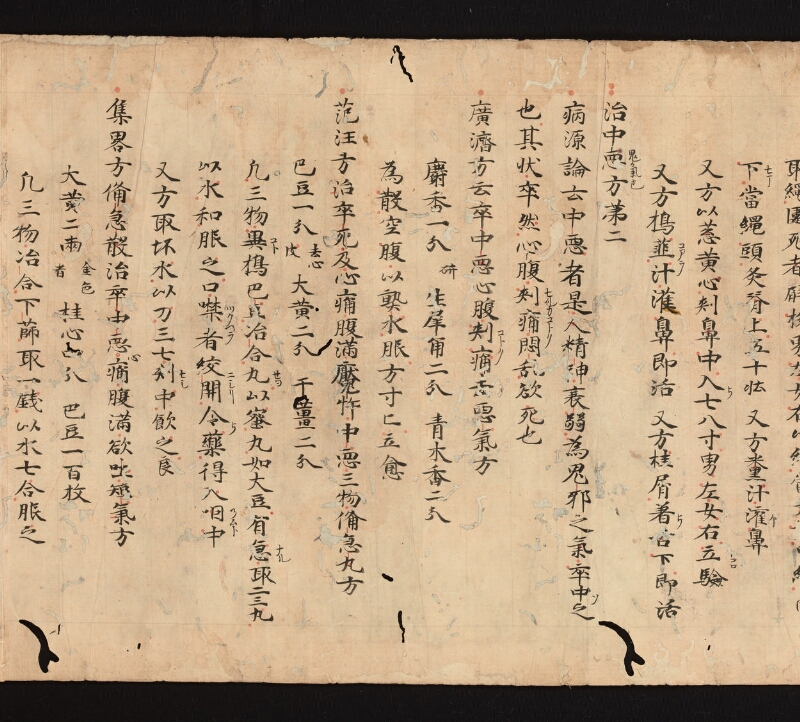 下當繩頭灸脊上五十壯 又方薑汁灌鼻
又方以葱黄心刾鼻中入七八寸男左女右立驗
又方搗韮汁灌鼻即活 又方桂屑著舌下即活
治中悪方第二
病源論云中悪者是人精神衰弱為鬼邪之氣卒中之
也其状卒然心腹刾痛悶乱欲死也
廣濟方云卒中悪心腹刾痛去悪氣方
麝香一分 研 生犀角二分 青木香二分
為散空腹以熟水服方寸匕立愈
范汪方治卒死及心痛腹滿魘忤中悪三物俻急丸方
巴豆一分 去心皮 大黄二分 干薑二分
凡三物異搗巴豆冶合丸以蜜丸如大豆有急取二三丸
以水和服之口噤者絞開令藥得入咽中
又方取坏水以刀三七刾中飲之良
集畧方俻急散治卒中悪心痛腹滿欲吐短氣方
大黄二兩 金色者 桂心 分 巴豆一百枚
凡三物冶合下篩取一錢以水七合服之